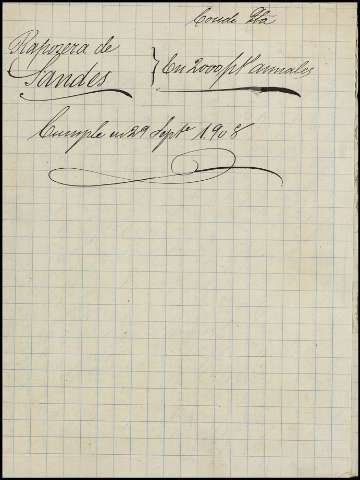 Conde
Rapozera de
Landes } En 2000 pts anuales
Cumple en 29 Septe 1.908